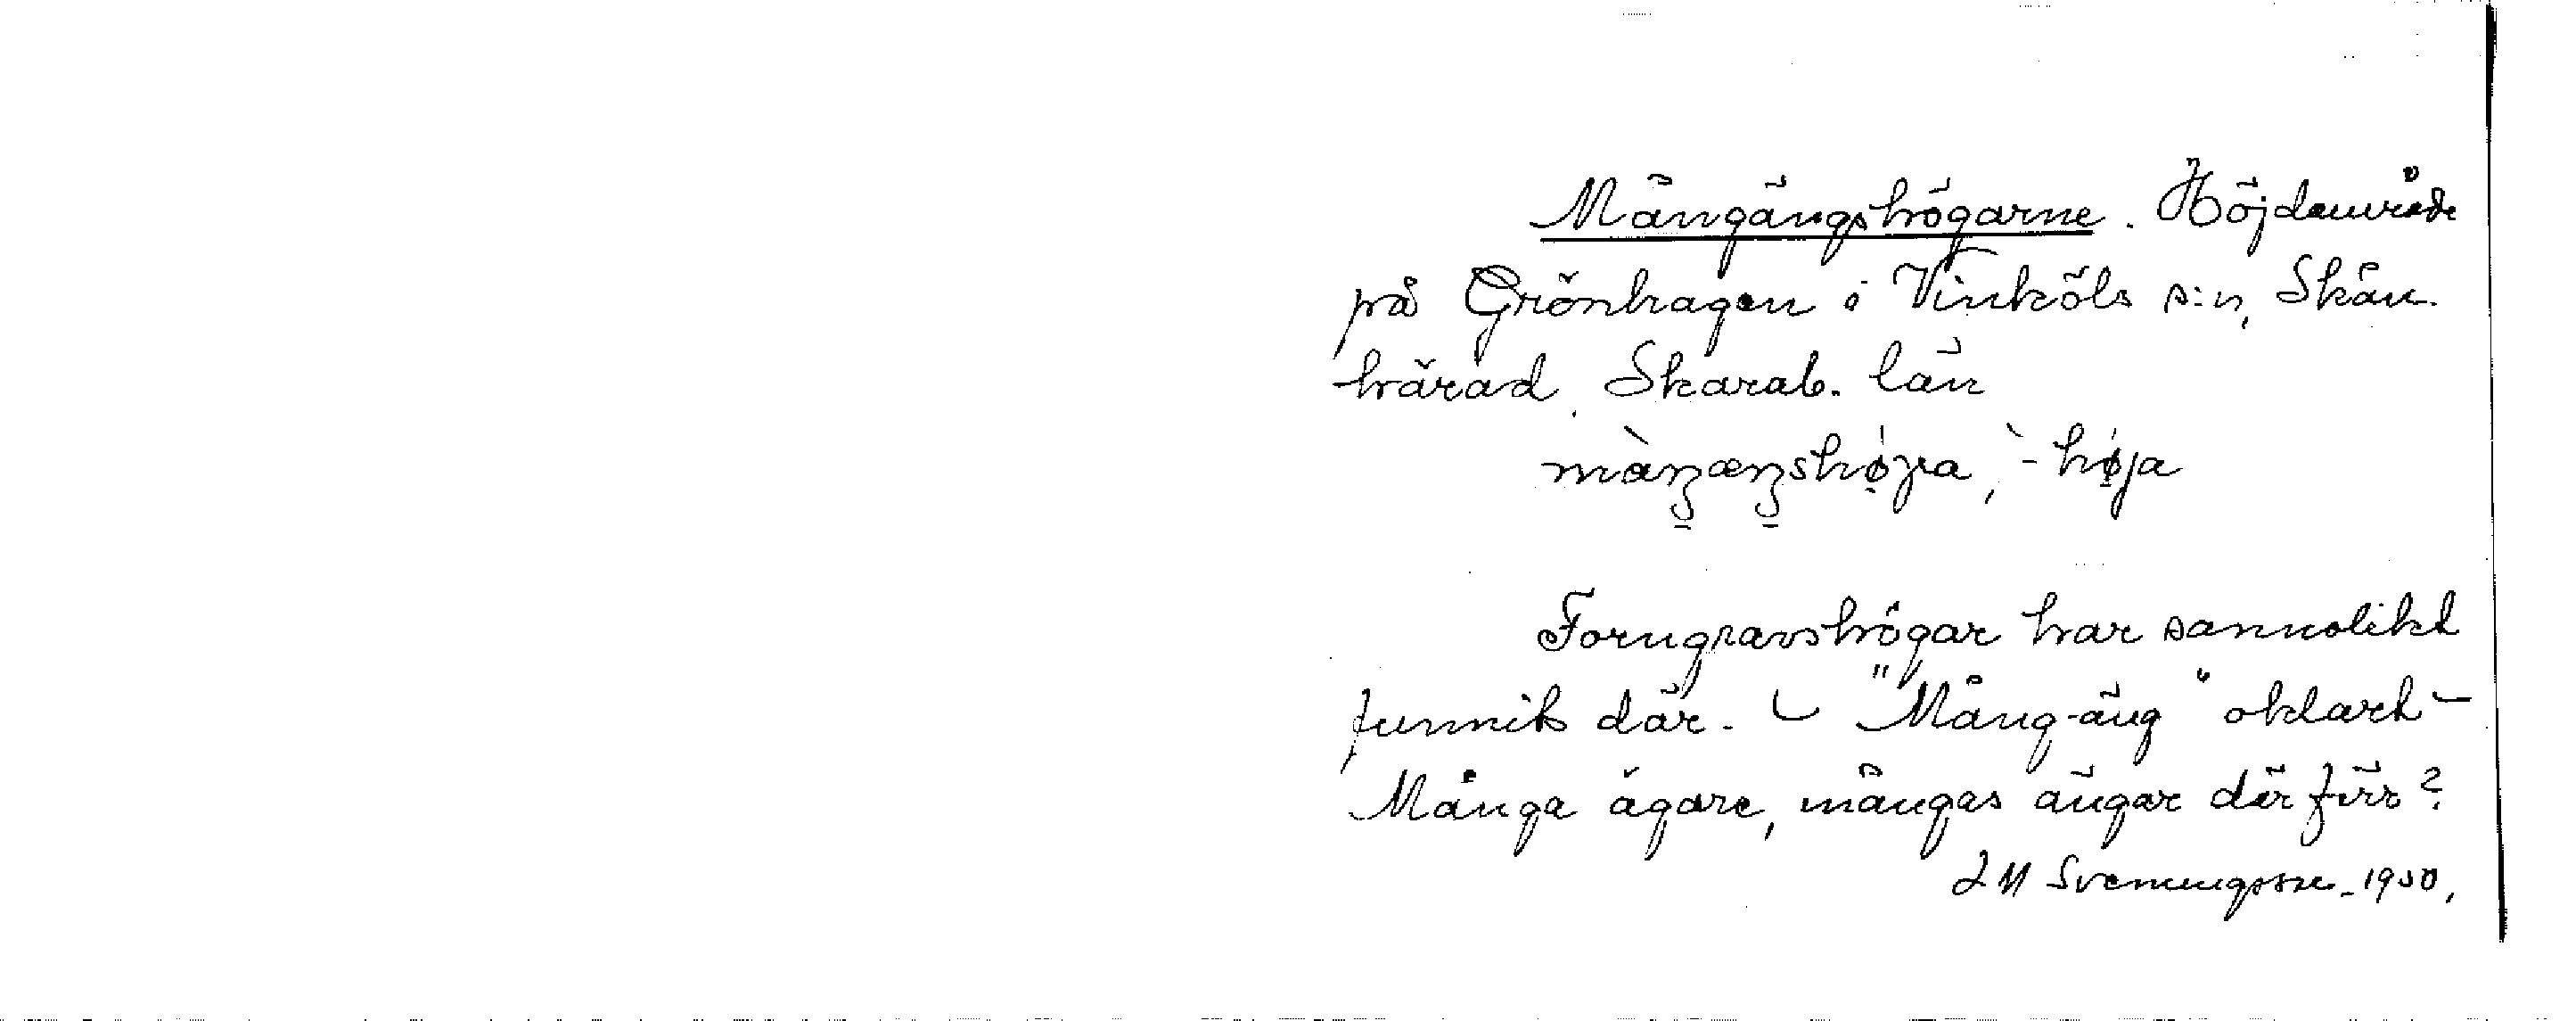 Mångängshögarne. Höjdområde
på Grönhagen i Vinköls s:n, Skån.
härad. Skarab. län
màŋæŋshø̀ja, `- høja
Forngravshögar har sannolikt
funnits där. - "Mång-äng" oklart -
Många ägare, mångas ängar där förr?
J M Svenungsson. 1930.